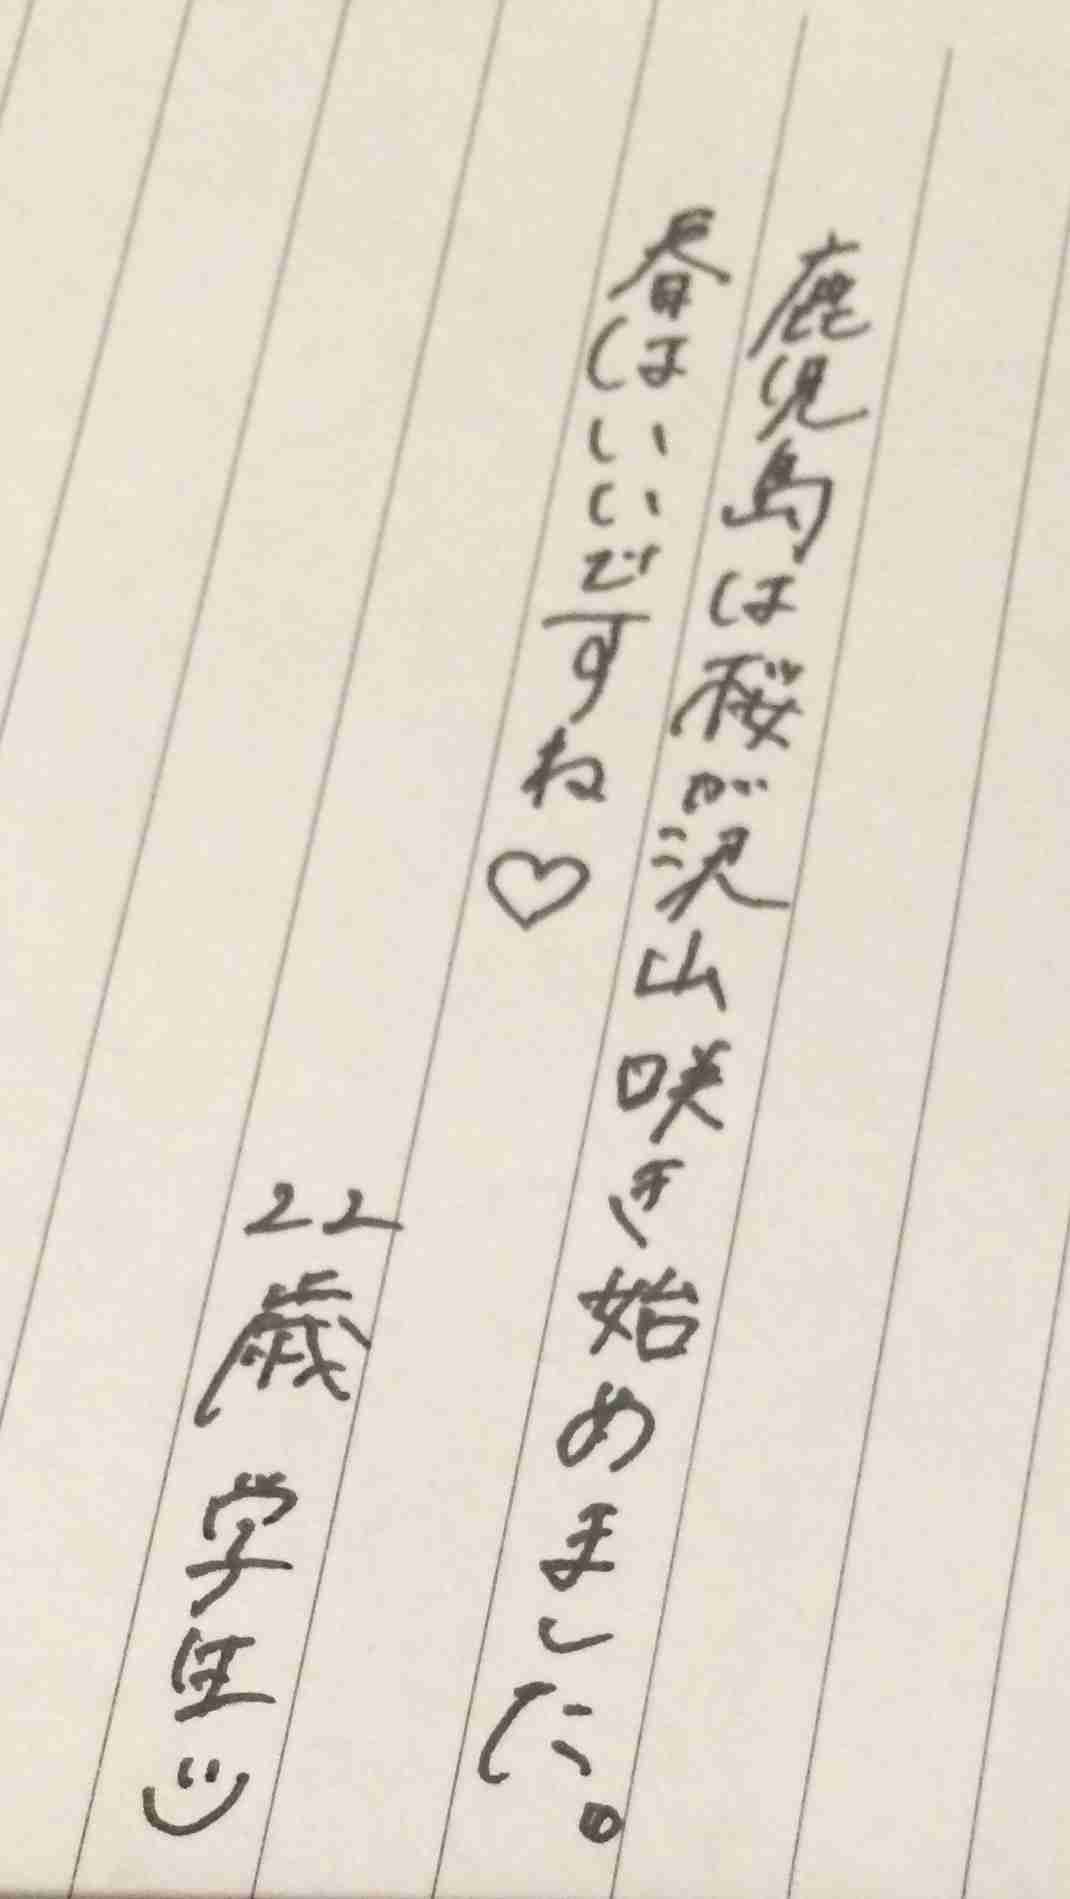 鹿児島は桜が沢山咲き始めました。
春はいいですね♡
22歳 学生